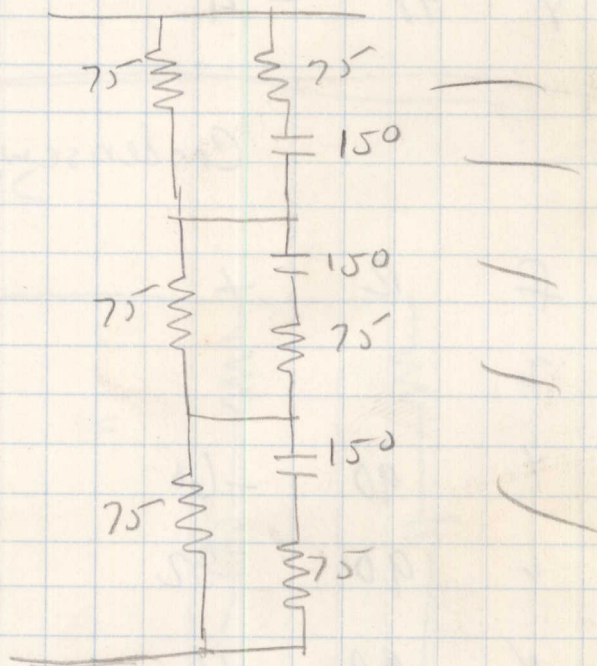 75 75
150
150
75
75
150
75
75